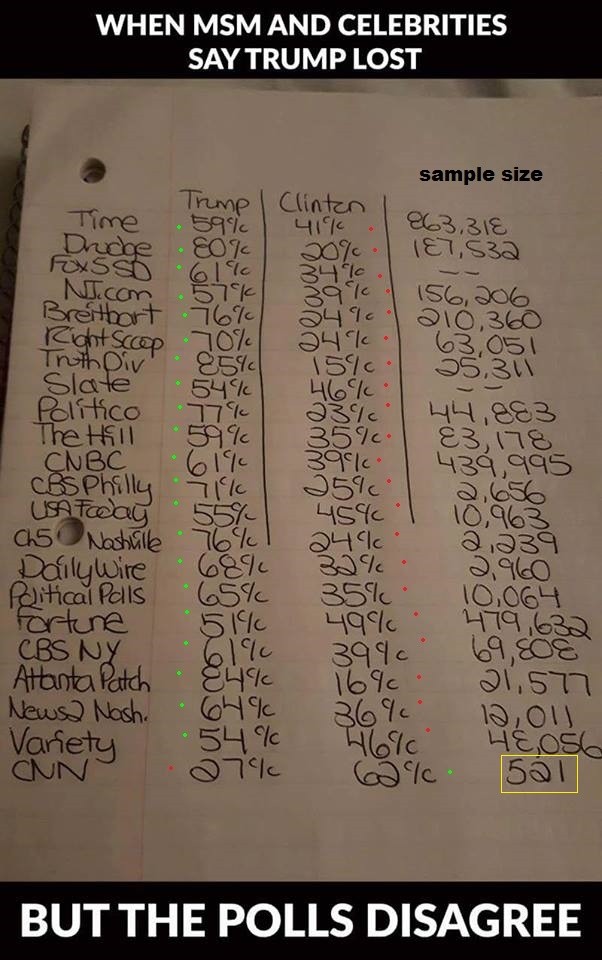 WHEN MSM AND CELEBRITIES
SAY TRUMP LOST
Trump Clinton sample size
Time 59% 41% 863,318
Drudge 80% 20% 187,532
Fox5SD 61% 34% --
NJ.com 57% 39% 156,206
Breitbart 76% 24% 210,360
RightScoop 70% 24% 63,051
TruthDiv 85% 15% 25,311
Slate 54% 46% --
Politico 77% 23% 44,883
The Hill 59% 35% 83,178
CNBC 61% 39% 439,995
CBS Philly 71% 25% 2,656
USA Today 55% 45% 10,963
Ch5 Nashville 76% 24% 2,239
DailyWire 68% 32% 2,960
Political Polls 65% 35% 10,064
Fortune 51% 49% 479,632
CBS NY 61% 39% 69,808
Atlanta Patch 84% 16% 21,577
News2 Nash. 64% 36% 12,011
Variety 54% 46% 48,056
CNN 27% 62% 521
BUT THE POLLS DISAGREE